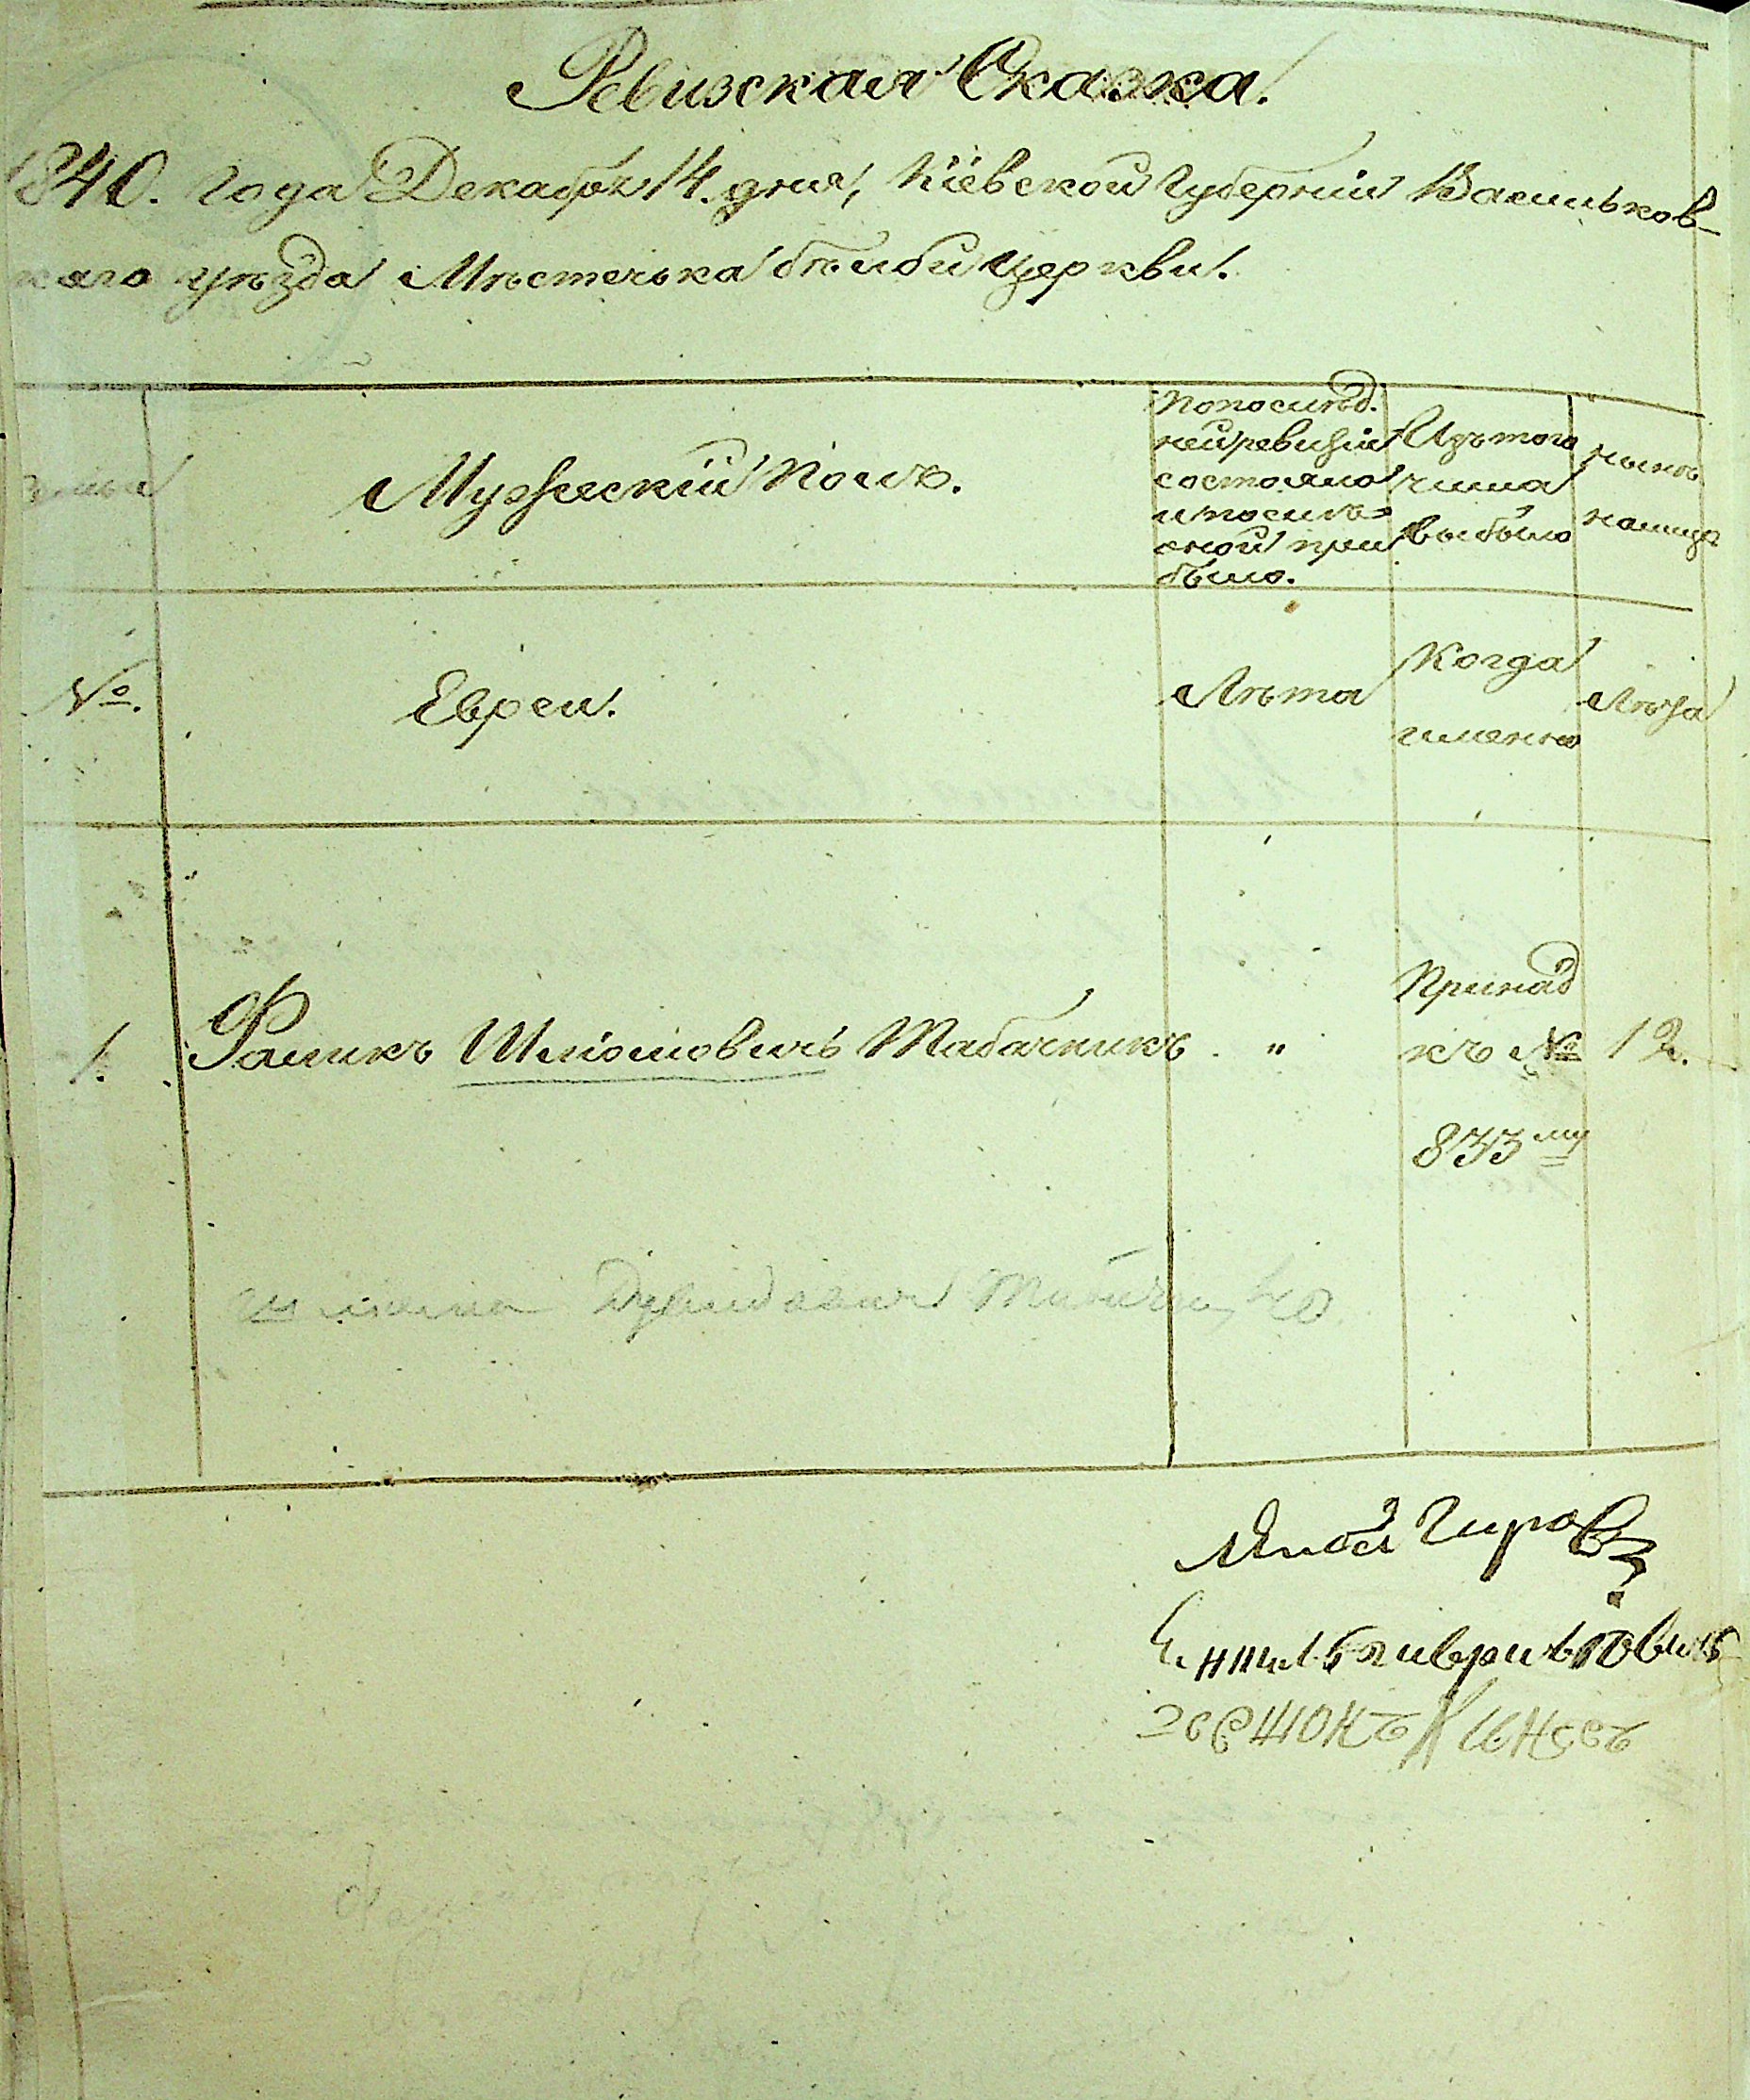 Ревизская Сказка.
1840. года Декабря 14. дня, Кіевской Губерніи Васильков-
скаго уѣзда Мѣстечька бѣлой Церкви.
Мужескій Полъ.
По послѣд.
ней ревизіи
состояло
и послѣ
оной при
было.
Изъ того
числа
выбыло
нынѣ
налицо
№.
Евреи.
Лѣта
Когда
имянно
Лѣта
1.
Фаликъ Шліомовичь Табачникъ
"
Принад
къ №
833му
12.